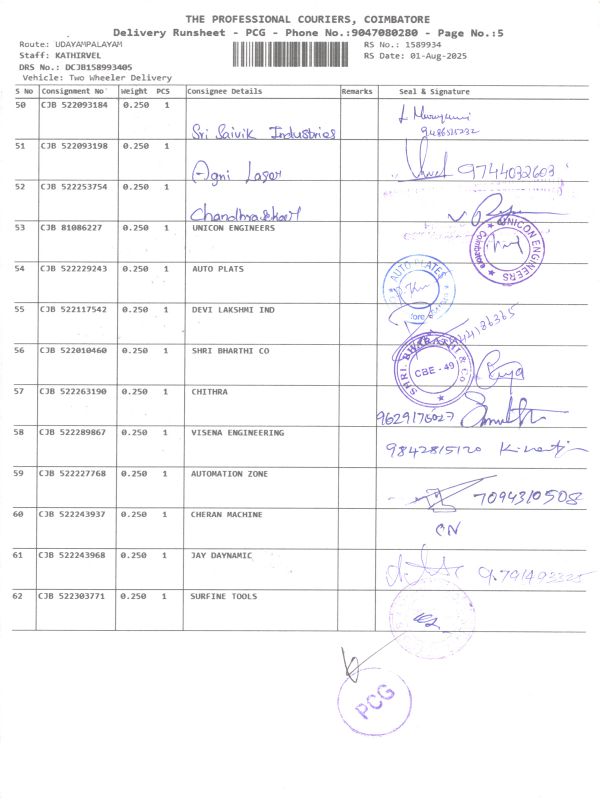 THE PROFESSIONAL COURIERS, COIMBATORE
Delivery Runsheet - PCG - Phone No.:9047080280 - Page No.:5
Route: UDAYAMPALAYAM
RS No.: 1589934
Staff: KATHIRVEL
RS Date: 01-Aug-2025
DRS No.: DCJB158993405
Vehicle: Two Wheeler Delivery
S No Consignment No Weight PCS Consignee Details Remarks Seal & Signature
50 CJB 522093184 0.250 1 Sri Saivik Industries
51 CJB 522093198 0.250 1 Agni Laser 9744032603
52 CJB 522253754 0.250 1 Chandhrasekar
53 CJB 81086227 0.250 1 UNICON ENGINEERS UNICON ENGINEERS
54 CJB 522229243 0.250 1 AUTO PLATS AUTO PLATES
55 CJB 522117542 0.250 1 DEVI LAKSHMI IND
56 CJB 522010460 0.250 1 SHRI BHARTHI CO CBE - 49
57 CJB 522263190 0.250 1 CHITHRA 9629176027
58 CJB 522289867 0.250 1 VISENA ENGINEERING 9842815120
59 CJB 522227768 0.250 1 AUTOMATION ZONE 7094310508
60 CJB 522243937 0.250 1 CHERAN MACHINE CN
61 CJB 522243968 0.250 1 JAY DAYNAMIC
62 CJB 522303771 0.250 1 SURFINE TOOLS
PCG